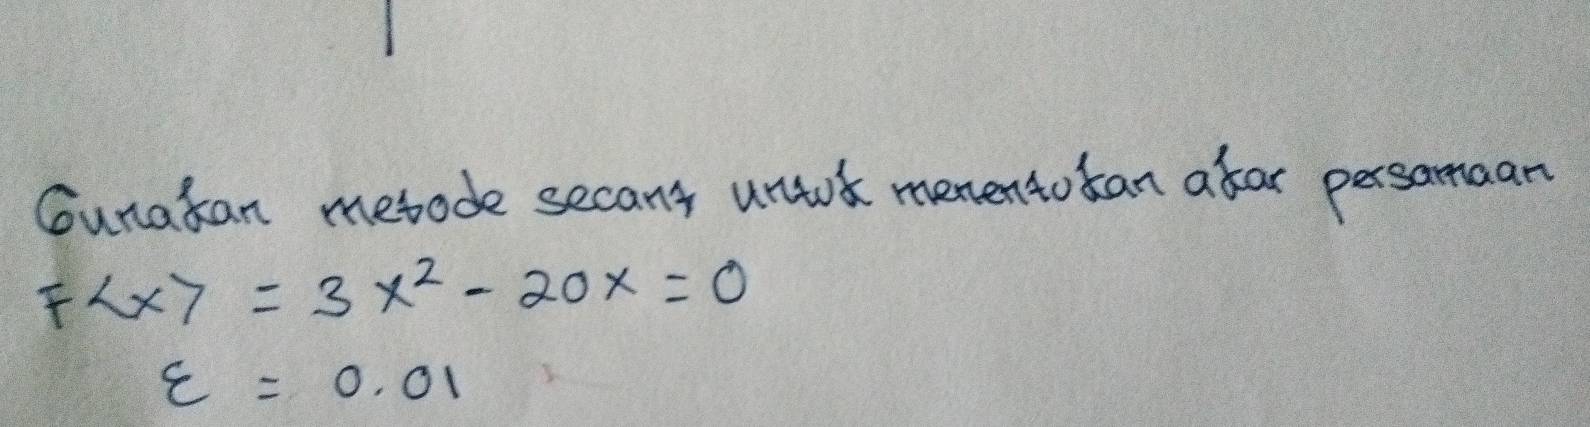 Gunakan metode secant untuk menentukan akar persamaan
F<x> = 3x² - 20x = 0
ε = 0.01